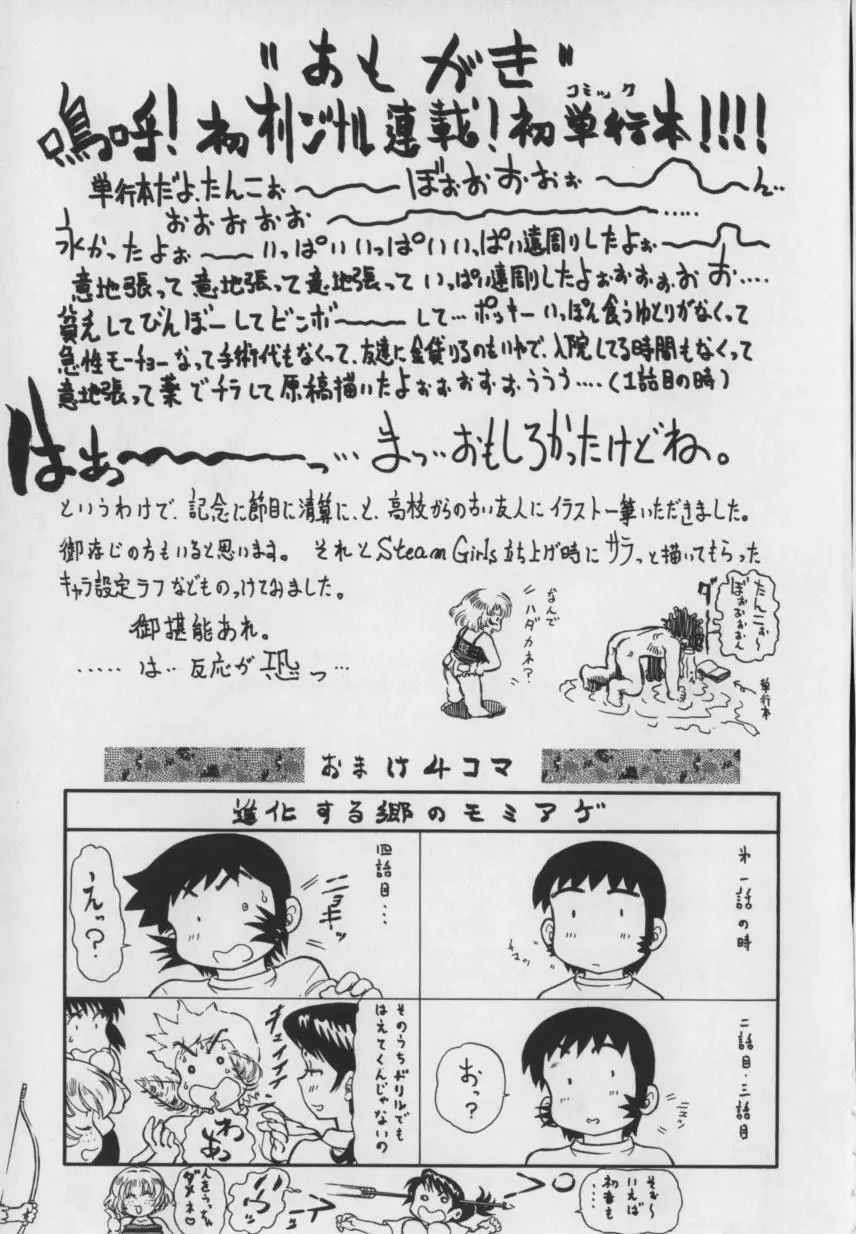 "あもがき"
嗚呼！初オリジナル連載！初単行本！！！！
コミック
単行本だよ、たんこぉ〜〜ぼぉぉおおぉぉ〜〜ん..
おおぉおお〜〜.....
永かったよぉ〜〜いっぱいいっぱいいっぱい遠周りしたよぉ〜〜
意地張って意地張って意地張っていっぱい遠周りしたよぉおおぉぉおお....
貧乏してびんぼーしてビンボ〜〜して…ポッキーいっぽん食うゆとりがなくって
急性モーチョーなって手術代もなくって、友達に金貸りるのもいやで、入院してる時間もなくって
意地張って薬でチラして原稿描いたよぉぉおおぉううう....(1話目の時)
はあっ〜〜〜っ…まっ…おもしろかったけどね。
というわけで、記念に節目に清算に、と、高校からの古い友人にイラスト一筆いただきました。
御存じの方もいると思います。それとSteam Girls立ち上げ時にサラっと描いてもらった
キャラ設定ラフなどものっけておみました。
御堪能あれ。
.....は..反応が恐っ...
なんで
ハダカネ？
たんこぉ〜
ぼぉぉおおん
ダーー
単行本
おまけ4コマ
進化する郷のモミアゲ
オ一話の時
チョコッ
二話目・三話目
おっ？
ニョコッ
四話目...
ニョキーッ
えっ？
そのうちドリルでも
はえてくんじゃないの
キュイイイイン
わあっ
そお〜
いえば
初音も
....
人をうっちゃ
ダメネ♡